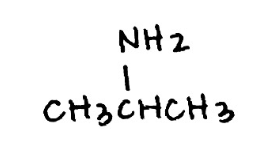 NH2
|
CH3CHCH3